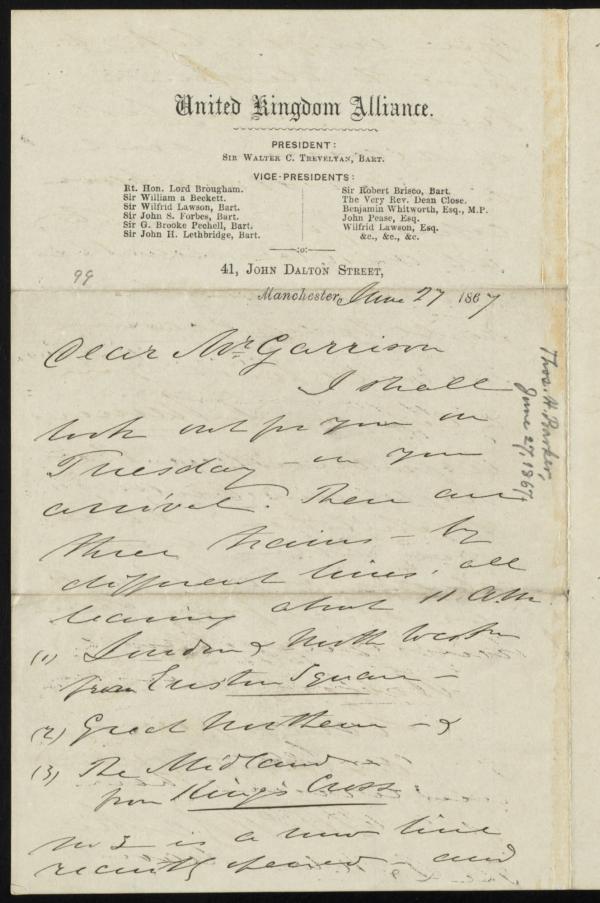 United Kingdom Alliance.
PRESIDENT:
SIR WALTER C. TREVELYAN, BART.
VICE-PRESIDENTS:
Rt. Hon. Lord Brougham.
Sir William a Beckett.
Sir Wilfrid Lawson, Bart.
Sir John S. Forbes, Bart.
Sir G. Brooke Pechell, Bart.
Sir John H. Lethbridge, Bart.
Sir Robert Brisco, Bart.
The Very Rev. Dean Close.
Benjamin Whitworth, Esq., M.P.
John Pease, Esq.
Wilfrid Lawson, Esq.
&c., &c., &c.
:o:
41, JOHN DALTON STREET,
99
Manchester, June 27 1867
Dear Mr. Garrison
I shall
look out for you on
Tuesday - on your
arrival. There are
three trains - by
different lines, all
leaving about 11 a.m.
(1) London & North Western
from Euston Square -
(2) Great Northern - &
(3) The Midland
from King's Cross.
No 3 is a new line
recently opened - and
Thos. H. Barker,
June 27, 1867.